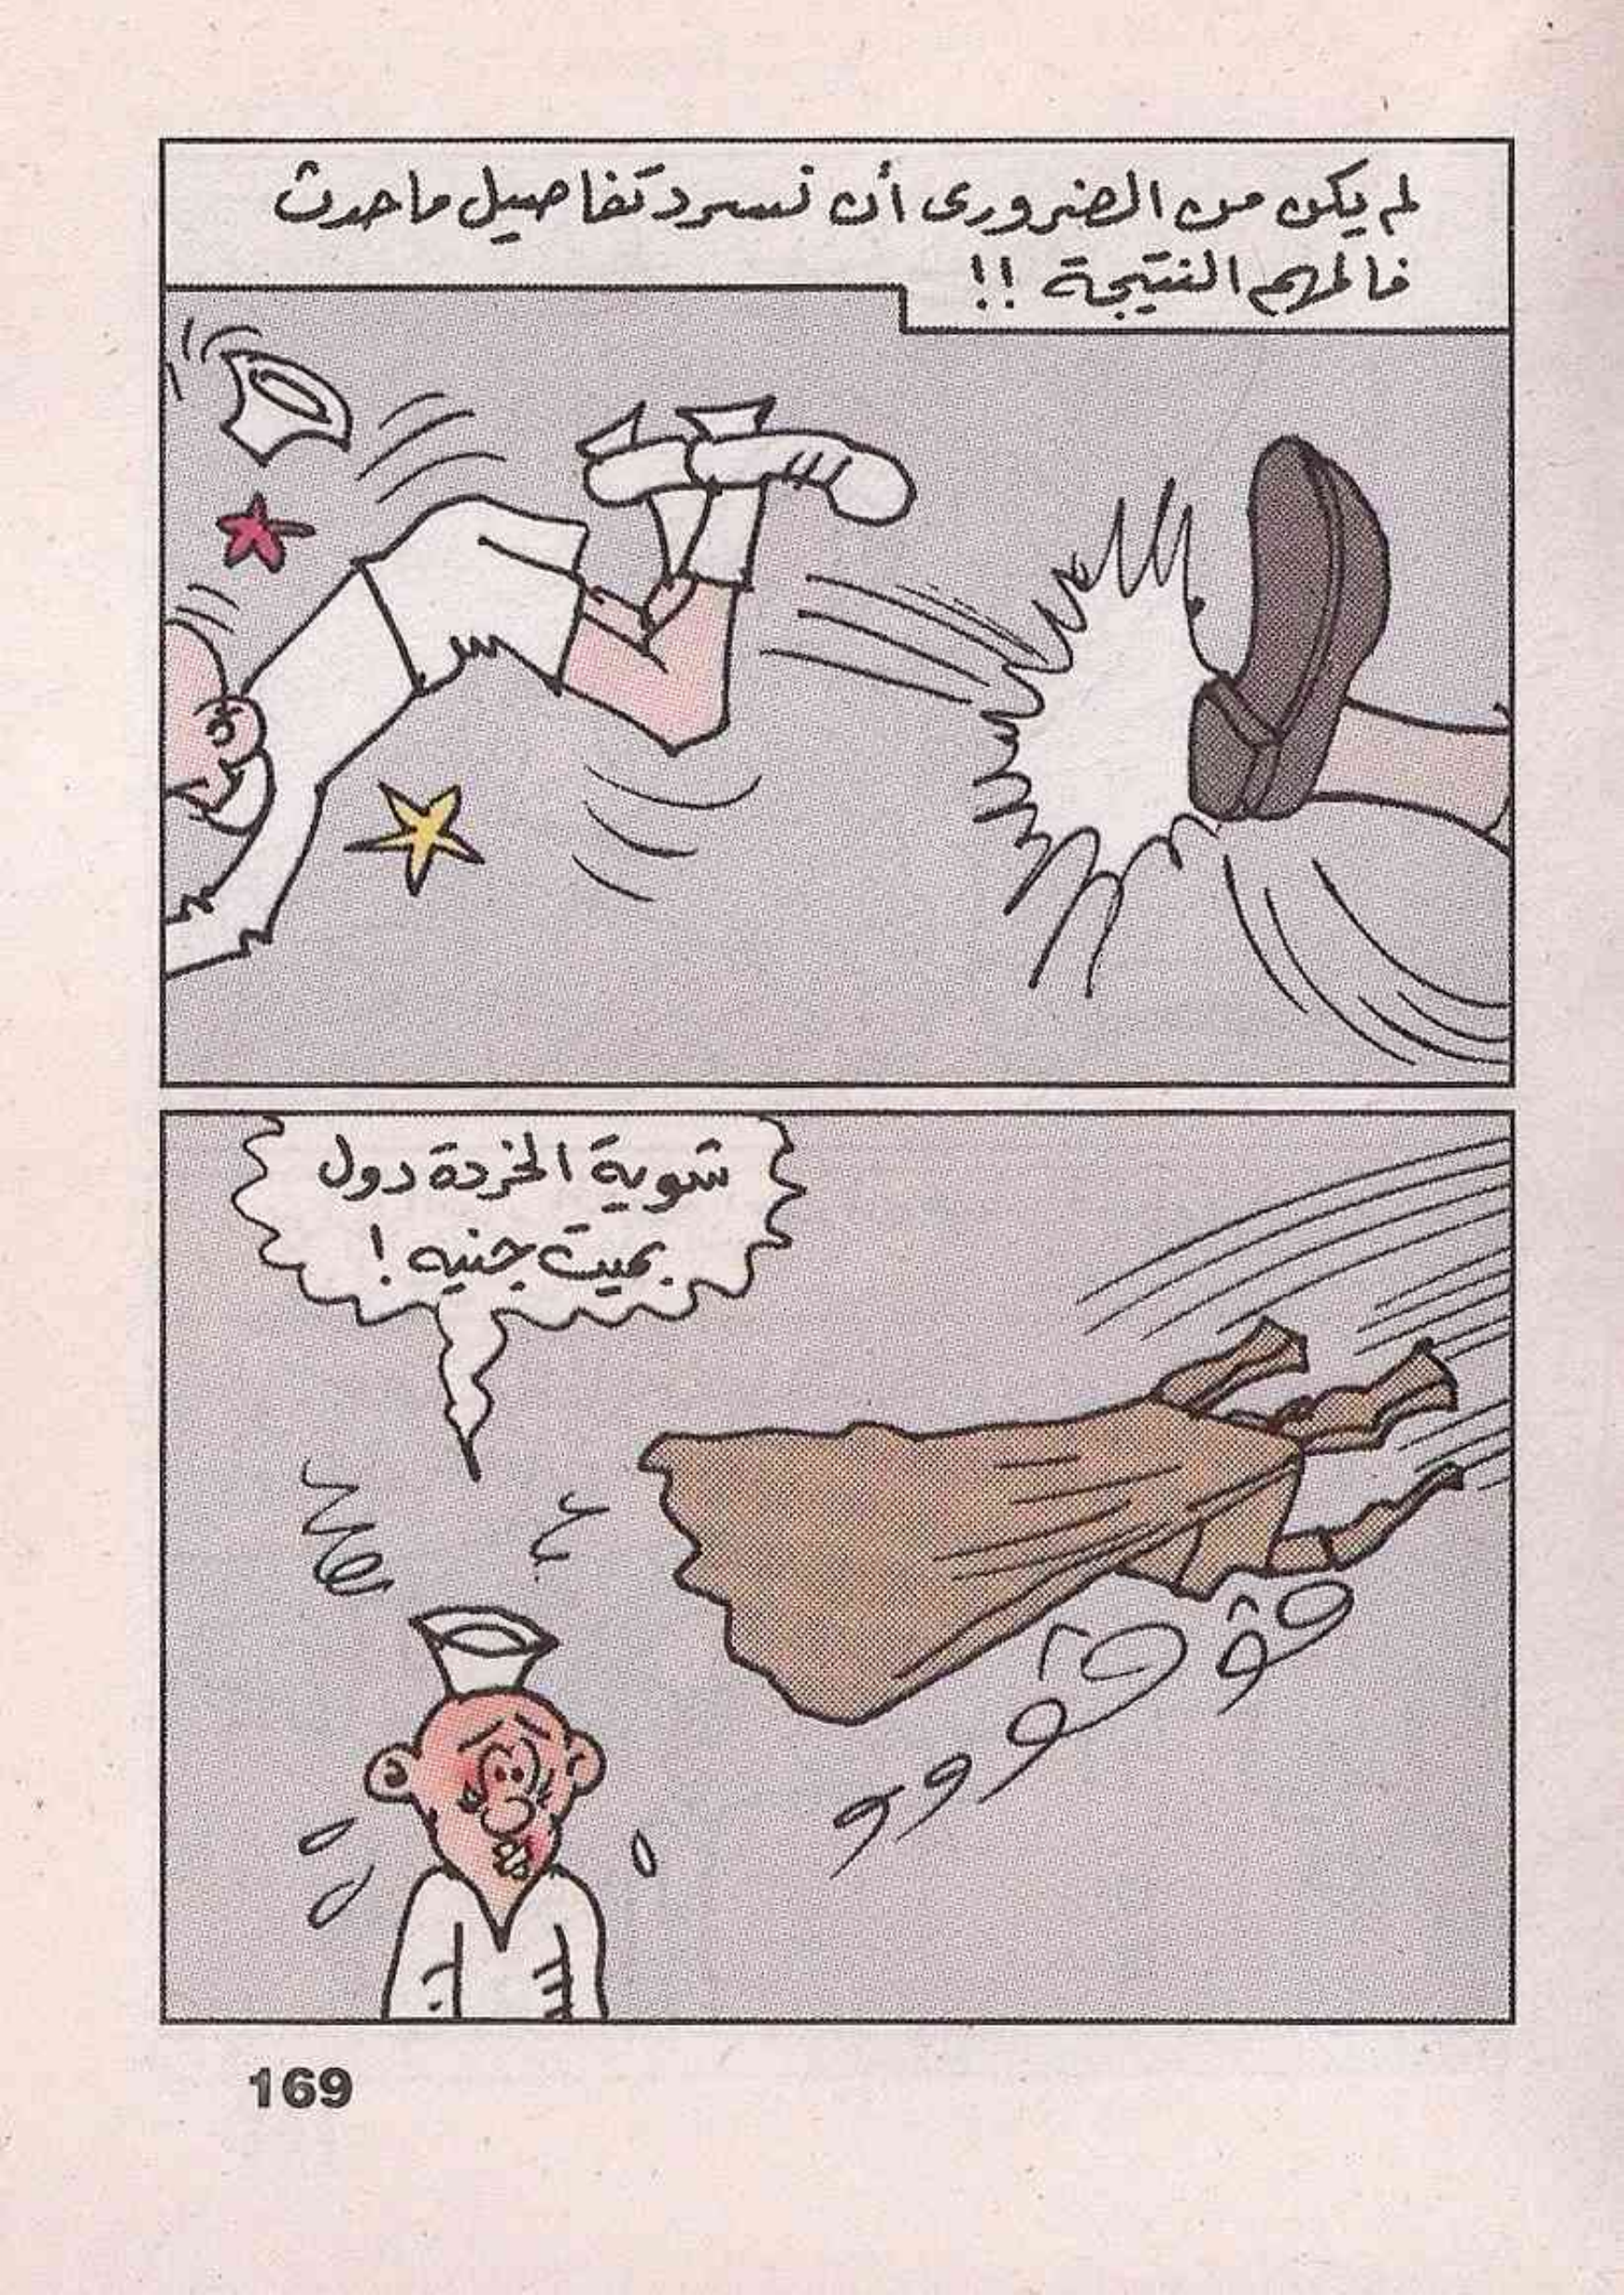 لم يكن من الضرورى أن نسرد تفاصيل ما حدث
فالمهم النتيجة !!
شوية الخردة دول
بميت جنيه !
169